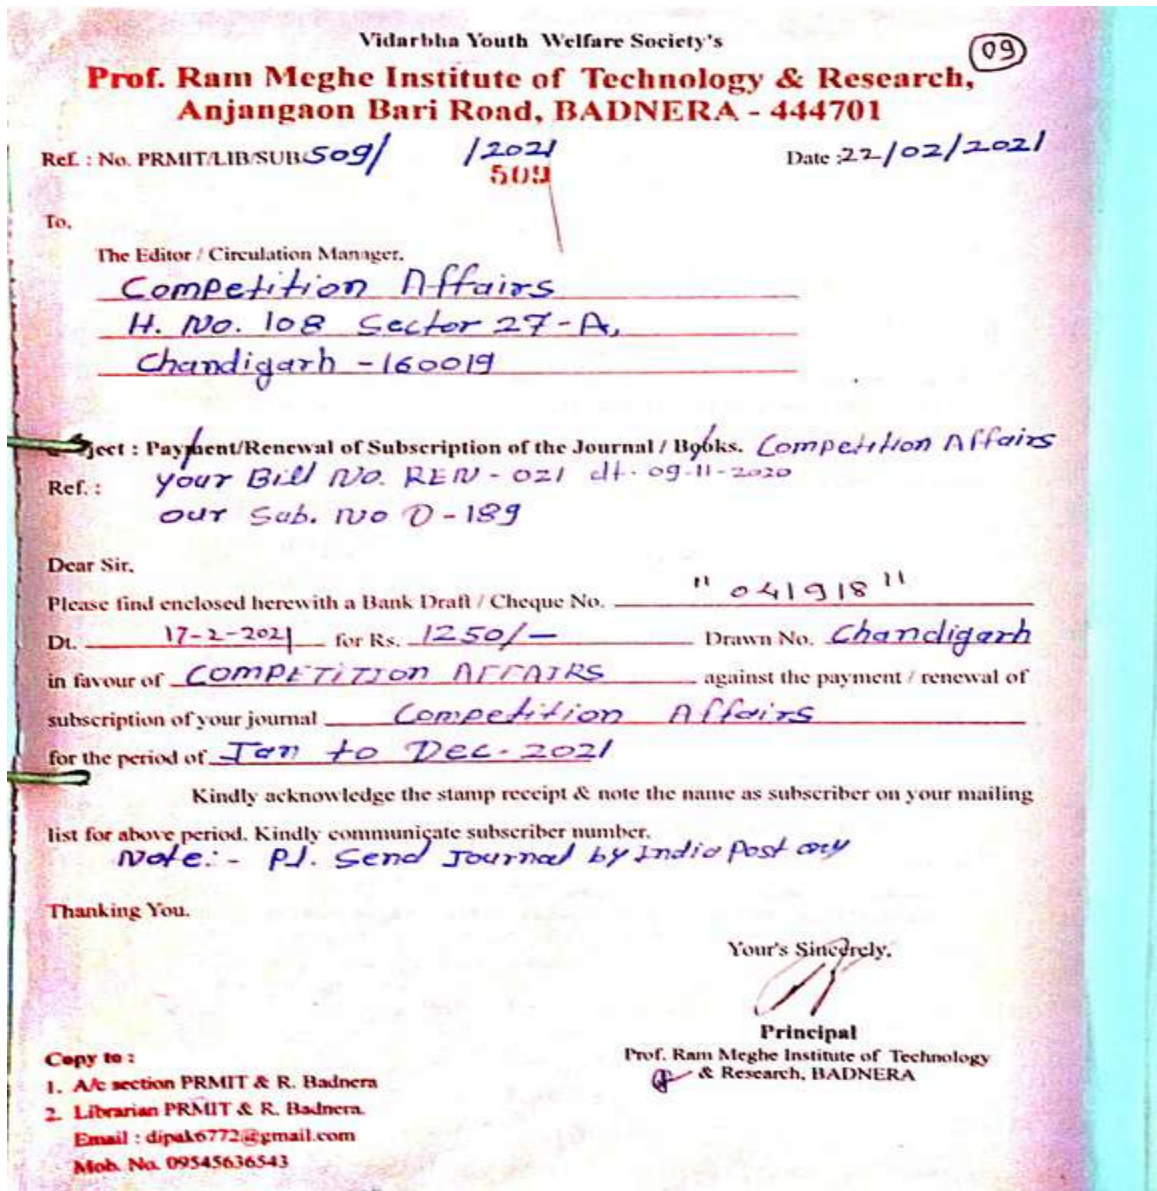 Vidarbha Youth Welfare Society's
09
Prof. Ram Meghe Institute of Technology & Research,
Anjangaon Bari Road, BADNERA - 444701
Ref. : No. PRMIT/LIB/SUB/509/ /2021
Date :22/02/2021
509
To,
The Editor / Circulation Manager,
Competition Affairs
H. No. 108 Sector 27-A,
Chandigarh - 160019
ject : Payment/Renewal of Subscription of the Journal / Books. Competition Affairs
Ref. : your Bill No. REN - 021 dt. 09-11-2020
our Sub. No D - 189
Dear Sir,
Please find enclosed herewith a Bank Draft / Cheque No. "041918"
Dt. 17-2-2021 for Rs. 1250/- Drawn No. Chandigarh
in favour of COMPETITION AFFAIRS against the payment / renewal of
subscription of your journal Competition Affairs
for the period of Jan to Dec - 2021
Kindly acknowledge the stamp receipt & note the name as subscriber on your mailing
list for above period. Kindly communicate subscriber number.
Note:- Pl. Send Journal by India Post ony
Thanking You.
Your's Sincerely,
Principal
Prof. Ram Meghe Institute of Technology
& Research, BADNERA
Copy to :
1. A/c section PRMIT & R. Badnera
2. Librarian PRMIT & R. Badnera.
Email : dipak6772@gmail.com
Mob. No. 09545636543